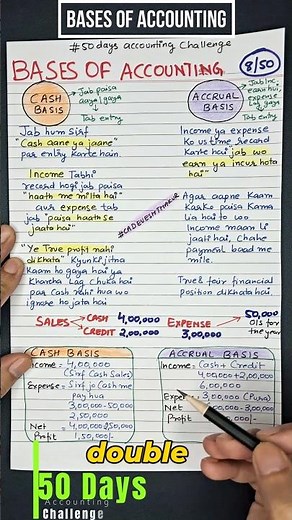 BASES OF ACCOUNTING
#50days accounting Challenge
BASES OF ACCOUNTING
8/50
CASH BASIS
Jab paisa aaye/gaya
Tab entry
ACCRUAL BASIS
Tab Inc.
earn hui,
Expense
lag gaya
Tab entry
Jab hum Sirf
"Cash aane ya jaane"
par entry karte hain.
Income Tabhi
record hogi jab paisa
"haath me milta hai"
aur expense tab
jab "paisa haath se
jaata hai"
"Ye True profit nahi
dikhata" Kyunki jitna
Kaam ho gaya hai ya
Kharcha lag chuka hai
par cash nahi hua wo
ignore ho jata hai
Income ya expense
Ko us time record
Karte hai jab wo
earn ya incur hota
hai"
Agar aapne Kaam
Karke paisa Kama
lia hai to wo
Income maan li
jaati hai, Chahe
payment baad me
mile.
True & fair financial
position dikhata hai.
#CADEVESHTHAKUR
SALES → CASH 4,00,000
CREDIT 2,00,000
EXPENSE
3,00,000
50,000
O/S for
the year
CASH BASIS
Income = 4,00,000
(Sirf Cash Sales)
Expense = Sirf jo Cash me
pay hua
3,00,000-50,000
2,50,000
Net = 4,00,000-2,50,000
Profit 1,50,000/-
ACCRUAL BASIS
Income = Cash + Credit
4,00,000+2,00,000
6,00,000
3,00,000 (Pura)
Net
-3,00,000
Profit
double
50 Days
Accounting
Challenge